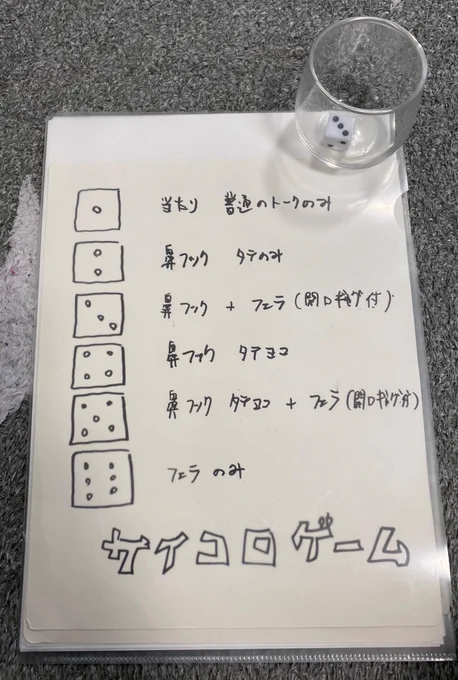 当たり 普通のトークのみ
鼻フック タテのみ
鼻フック + フェラ(開口ギャグ付)
鼻フック タテヨコ
鼻フック タテヨコ + フェラ(開口ギャグ付)
フェラのみ
サイコロゲーム